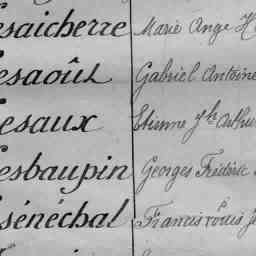 esaicherre Marie Ange H
esaoût Gabriel Antoine
esaux Etienne Jh Arthur
esbaupin Georges Frédéric
sénéchal Francis Louis J